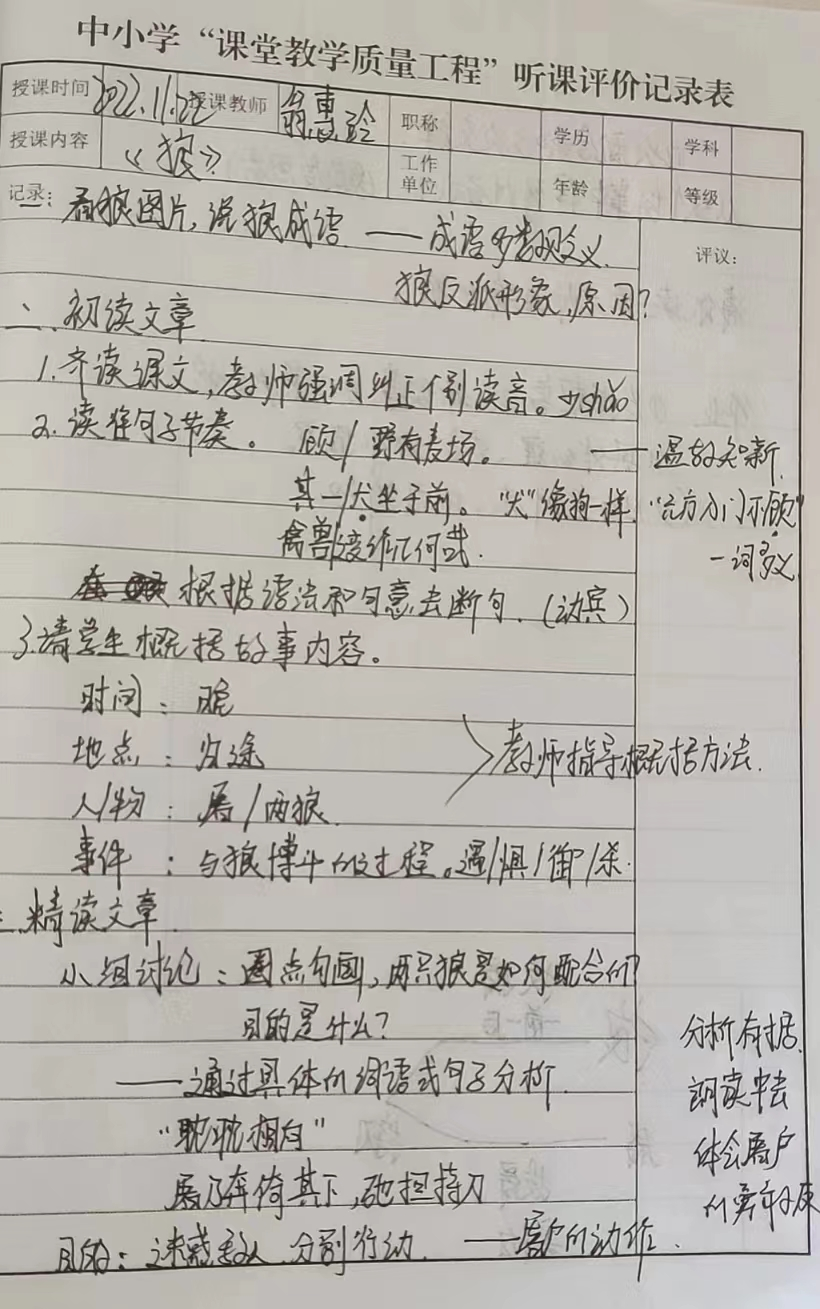 中小学“课堂教学质量工程”听课评价记录表
授课时间 2022.11.22 授课教师 翁惠玲 职称 学历 学科
授课内容 《狼》 工作单位 年龄 等级
记录: 评议:
一: 看狼图片,说狼成语 —— 成语多贬义.
狼反派形象,原因?
二. 初读文章
1. 齐读课文,教师强调纠正个别读音。少shǎo
2. 读准句子节奏。 顾/野有麦场。 —— 温故知新.
其一/犬坐于前。“犬”像狗一样. “元方入门不顾”
禽兽变诈几何哉. 一词多义
根据语法和句意去断句.(动宾)
3.请学生概括故事内容。
时间: 晚
地点: 归途
人/物: 屠/两狼.
教师指导概括方法.
事件: 与狼博斗的过程。遇/惧/御/杀.
三.精读文章.
小组讨论:圈点勾画,两只狼是如何配合的?
目的是什么?
——通过具体的词语或句子分析.
“眈眈相向”
屠乃奔倚其下,弛担持刀
目的: 迷惑敌人 分别行动. ——屠户的动作.
分析有据.
朗读中去
体会屠户